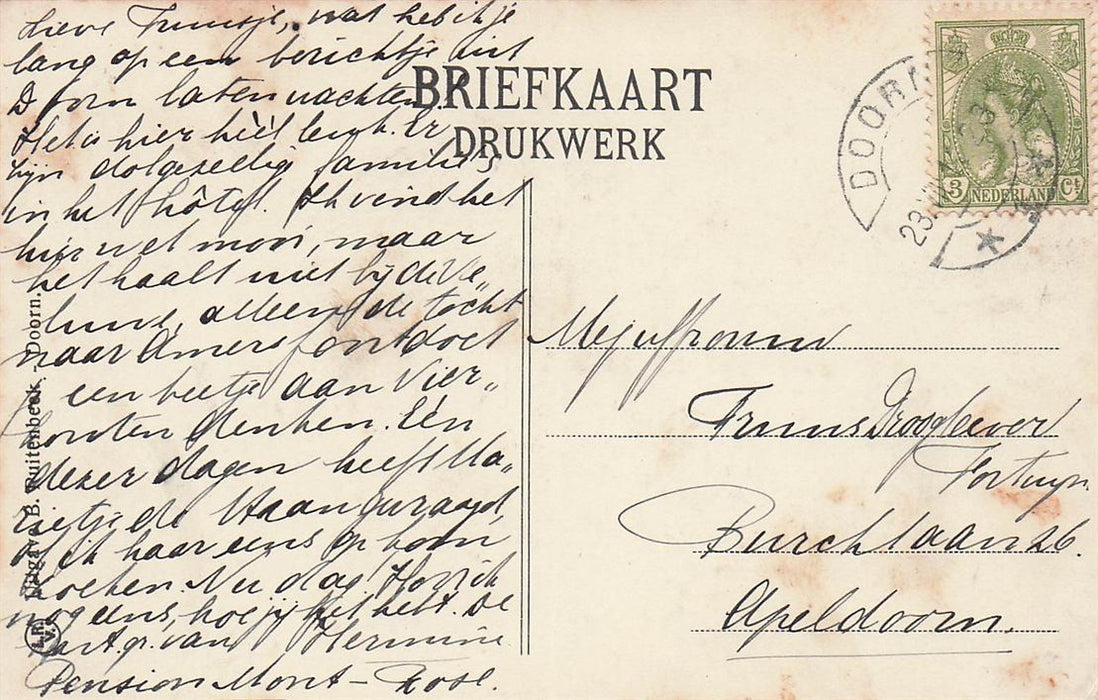 Lieve Truusje, wat heb ik je
lang op een berichtje uit
Doorn laten wachten.
Het is hier heel leuk. Er
zijn dolgezellig families
in het hôtel. Ik vind het
hier wel mooi, maar
het haalt niet bij de Ve„
luwe, alleen de tocht
naar Amersfoort doet
een beetje aan Vier„
houten denken. Een
dezer dagen heeft Ma„
rietje de Haan gevraagd,
of ik haar eens op kom
zoeken. Nu dag! Hoor ik
nog eens, hoe jij het hebt. De
hart. gr. van Hermine
Pension Mont-Rose.
BRIEFKAART
DRUKWERK
DOORN
23
3 NEDERLAND Ct
Mejuffrouw
Truus Droogleever
Fortuyn
Burchlaan 26.
Apeldoorn.
Uitgave B. Ruitenbeek, Doorn.